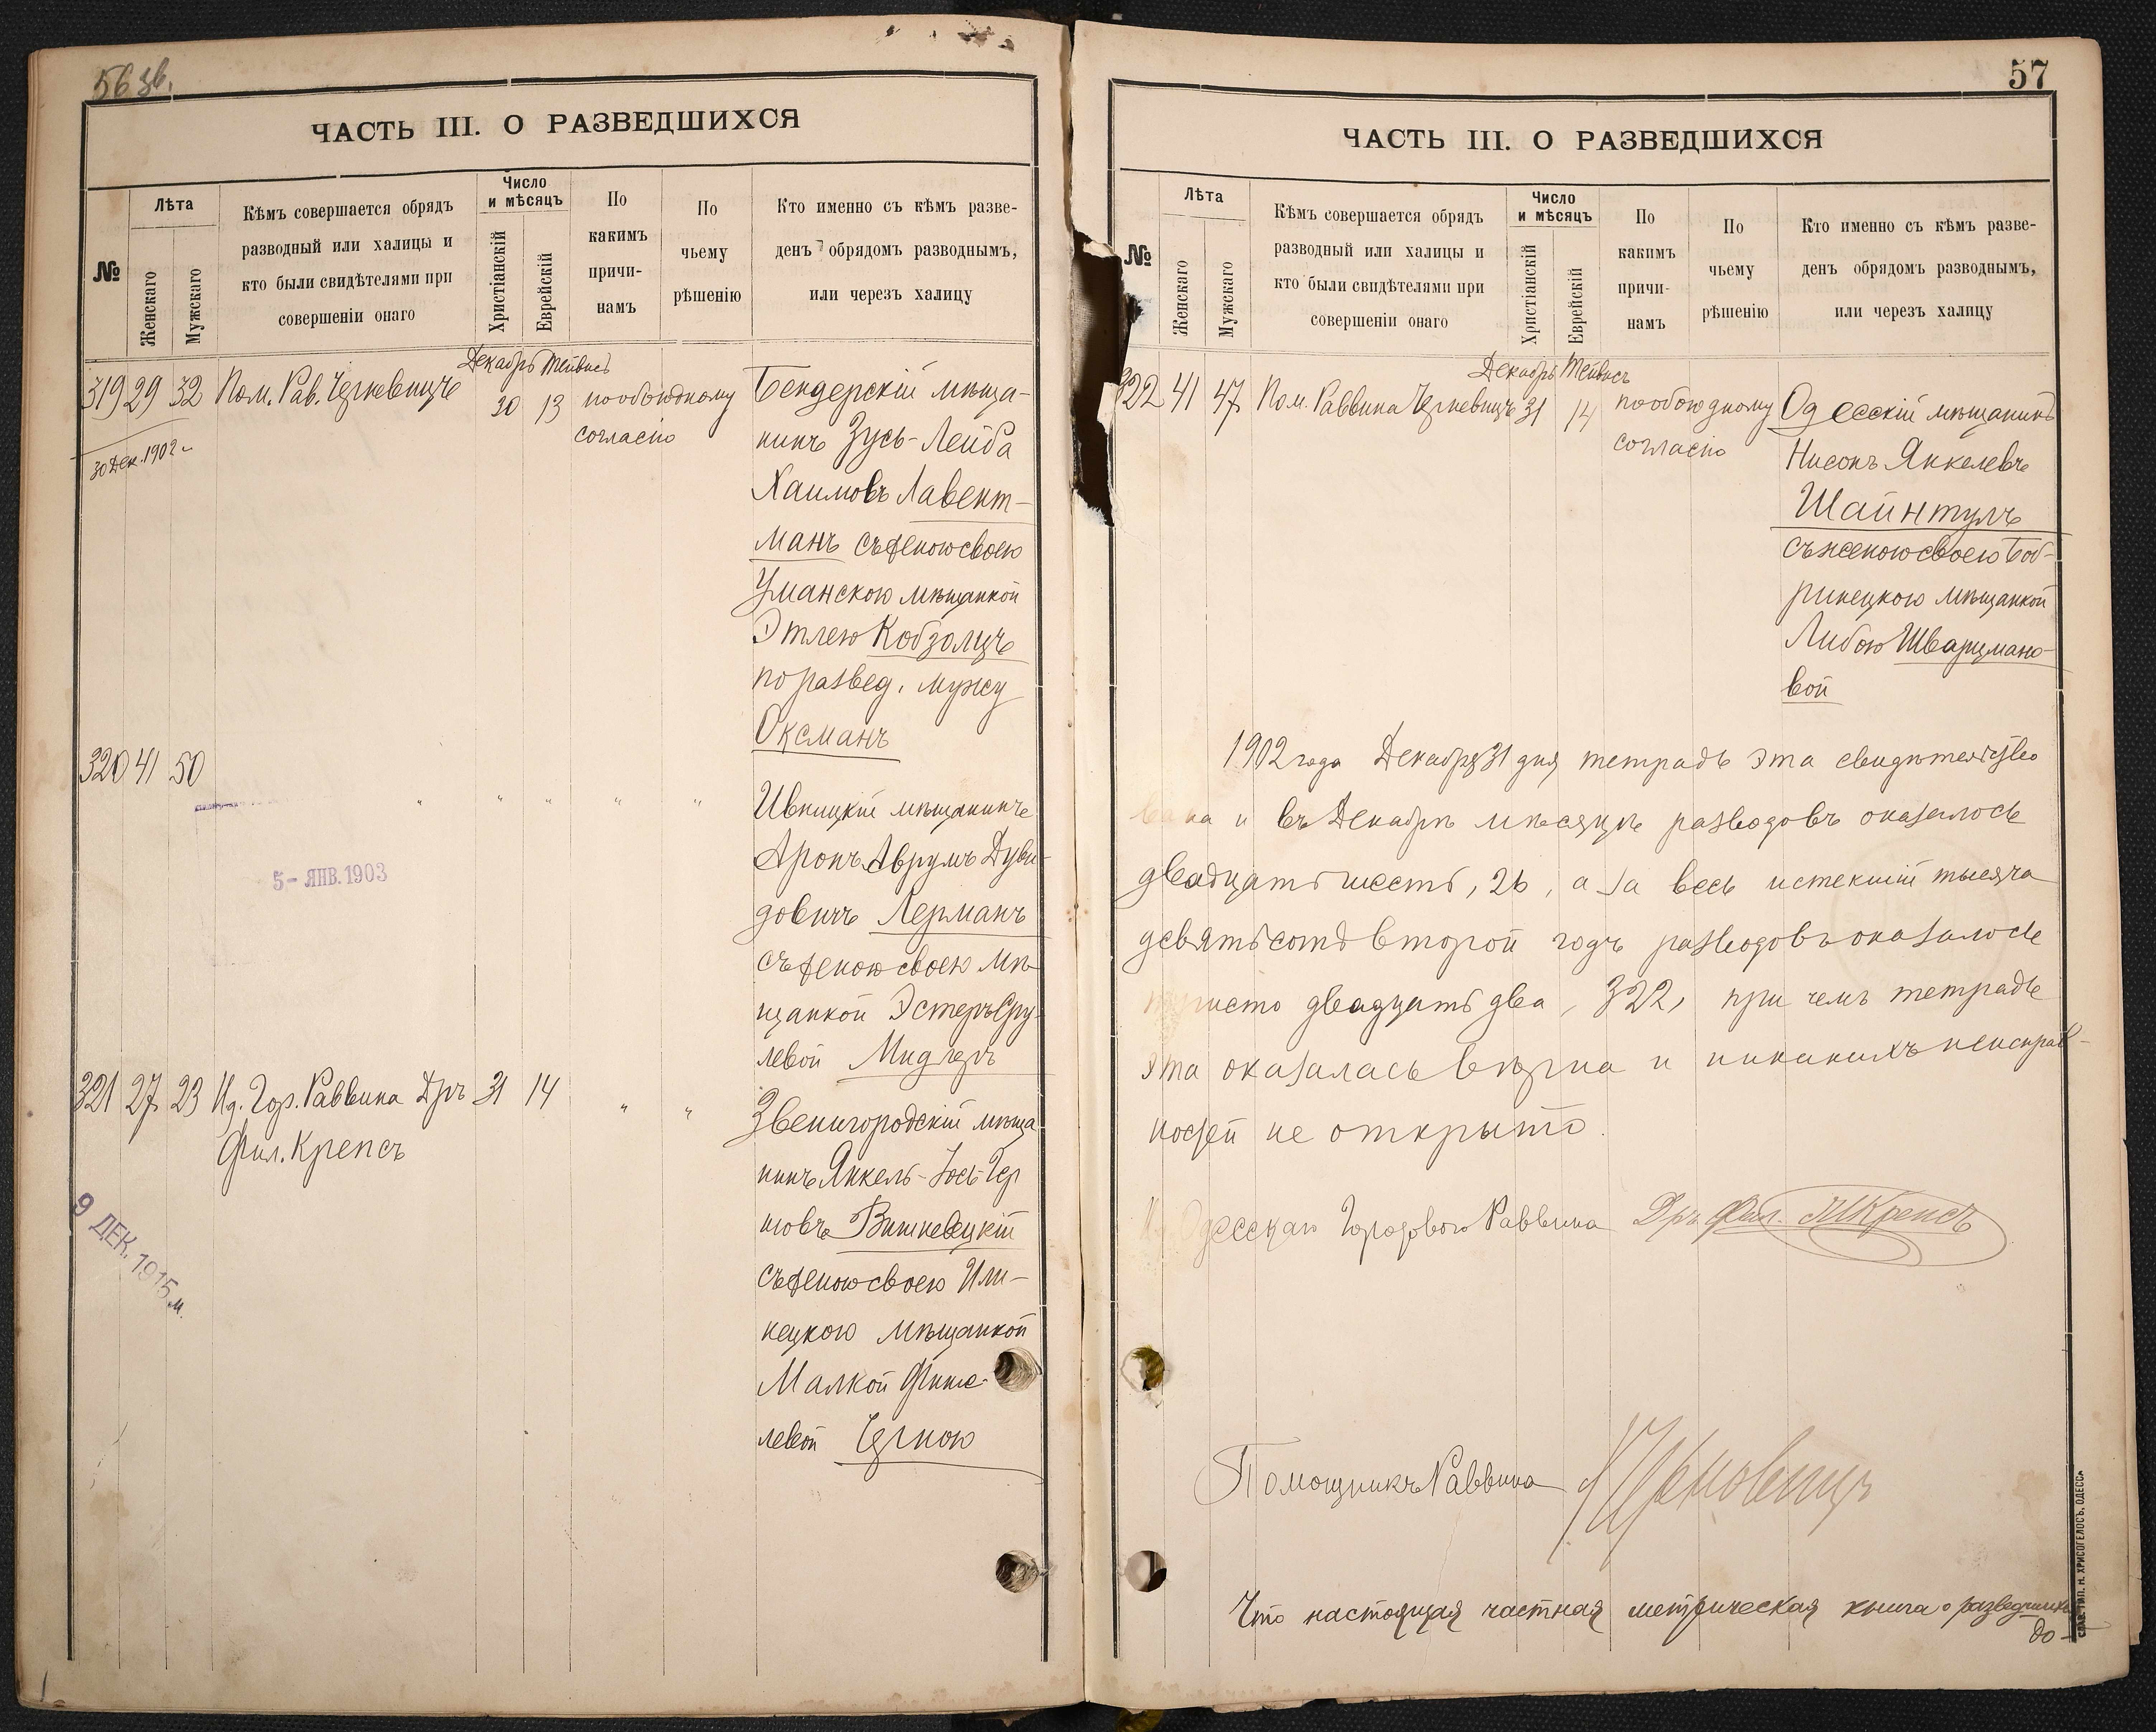 56 зв.
ЧАСТЬ III. О РАЗВЕДШИХСЯ
№
Лѣта
Женскаго
Мужскаго
Кѣмъ совершается обрядъ
разводный или халицы и
кто были свидѣтелями при
совершеніи онаго
Число
и мѣсяцъ
Христіанскій
Еврейскій
По
какимъ
причи-
намъ
По
чьему
рѣшенію
Кто именно съ кѣмъ разве-
денъ обрядомъ разводнымъ,
или черезъ халицу
Декабрь Тейвись
319 29 32 Пом. Рав. Черновицъ 30 13 по обоюдному
согласію
30 Дек. 1902 г.
Бендерскій мѣща-
нинъ Зусь-Лейба
Хаимовъ Лавент-
манъ съ женою своею
Уманскою мѣщанкой
Этлею Кобзолцъ
по развед. мужу
Оксманъ
320 41 50 " " " " "
Ивницкій мѣщанинъ
Аронъ Аврумъ Дуви-
довичъ Лерманъ
съ женою своею мѣ-
щанкой Эстеръ Сру-
левой Мидлеръ
5- ЯНВ. 1903
321 27 23 Ид. Гор. Раввина Дръ 31 14 " "
Фил. Крепсъ
Звенигородскій мѣща
нинъ Янкель-Iось Гер
шовъ Вишневецкій
съ женою своею Или-
нецкою мѣщанкой
Малкой Фише-
левой Черною
9 ДЕК. 1915
57
ЧАСТЬ III. О РАЗВЕДШИХСЯ
№
Лѣта
Женскаго
Мужскаго
Кѣмъ совершается обрядъ
разводный или халицы и
кто были свидѣтелями при
совершеніи онаго
Число
и мѣсяцъ
Христіанскій
Еврейскій
По
какимъ
причи-
намъ
По
чьему
рѣшенію
Кто именно съ кѣмъ разве-
денъ обрядомъ разводнымъ,
или черезъ халицу
Декабрь Тейвись
322 41 47 Пом. Раввина Черновицъ 31 14 по обоюдному
согласію
Одесскій мѣщанинъ
Нисонъ Янкелевъ
Шайнтулъ
съ женою своею Боб-
ринецкою мѣщанкой
Либою Шварцмано-
вой
1902 года Декабря 31 дня тетрадь эта свидѣтельство
вана и въ Декабрѣ мѣсяцѣ разводовъ оказалось
двадцать шесть, 26, а за весь истекшій тысяча
девятьсотъ второй годъ разводовъ оказалось
триста двадцать два, 322, при чемъ тетрадь
эта оказалась вѣрна и никакихъ неисправ-
ностей не открыто.
И. Одесскаго Городового Раввина Дръ Фил. Крепсъ
Помощникъ Раввина Черновицъ
Что настоящая частная метрическая книга о разведшихся
до-
СЛАВ. ТИП. Н. ХРИСОГЕЛОСЪ, ОДЕССА